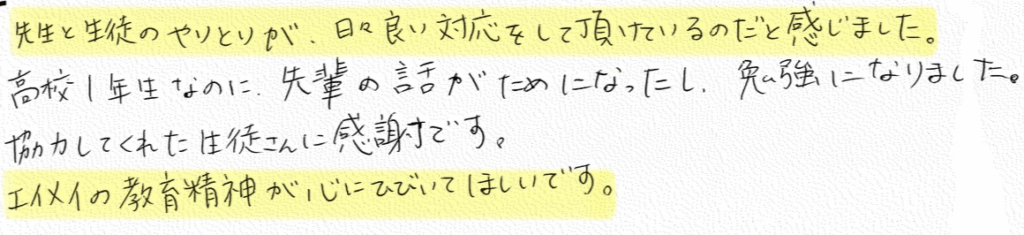 先生と生徒のやりとりが、日々良い対応をして頂けているのだと感じました。
高校1年生なのに、先輩の話がためになったし、勉強になりました。
協力してくれた生徒さんに感謝です。
エイメイの教育精神が心にひびいてほしいです。